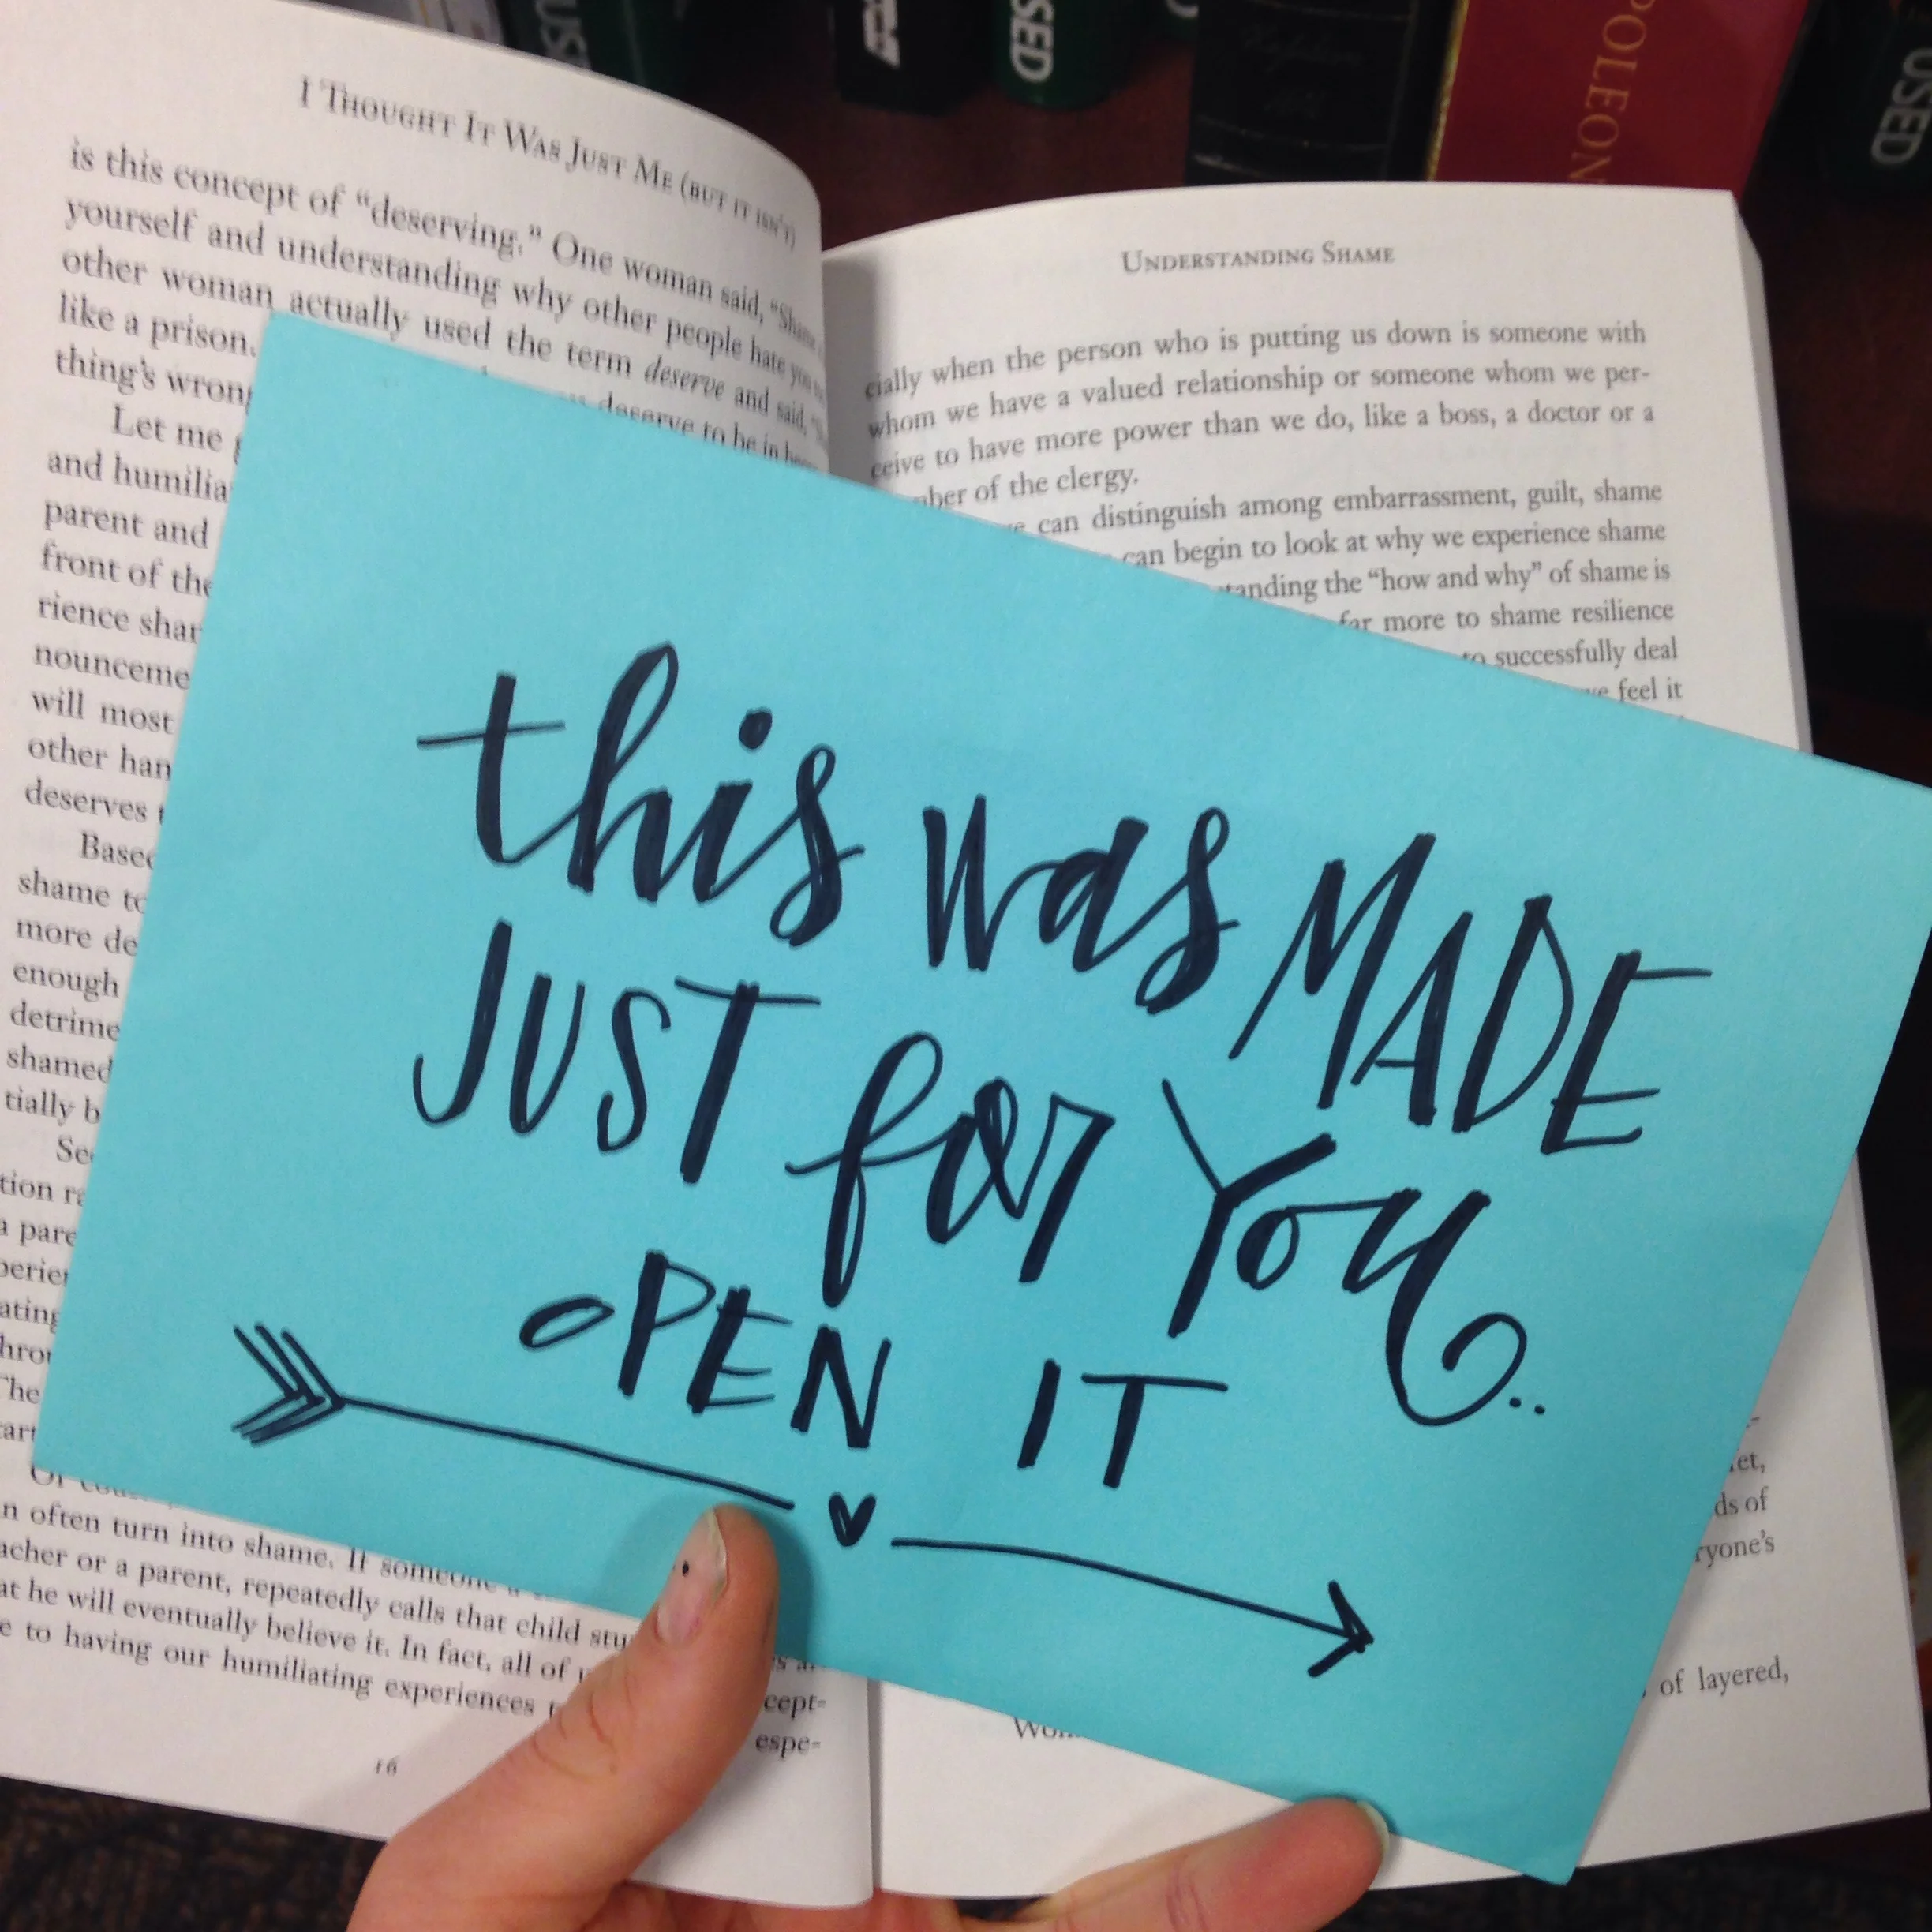 USED
USED
POLEON
USED
I THOUGHT IT WAS JUST ME (BUT IT ISN'T)
is this concept of “deserving.” One woman said, “Shame
yourself and understanding why other people hate you
other woman actually used the term deserve and said,
like a prison.
deserve to be in
thing's wrong
Let me
and humilia
parent and
front of the
rience shar
nounceme
will most
other han
deserves t
Based
shame to
more de
enough
detrime
shamed
tially b
Se
tion ra
a pare
perien
ating
hrou
The
art
n often turn into shame. If someone
acher or a parent, repeatedly calls that child stu
at he will eventually believe it. In fact, all of
e to having our humiliating experiences t
16
UNDERSTANDING SHAME
cially when the person who is putting us down is someone with
whom we have a valued relationship or someone whom we per-
ceive to have more power than we do, like a boss, a doctor or a
mber of the clergy.
can distinguish among embarrassment, guilt, shame
can begin to look at why we experience shame
tanding the “how and why” of shame is
far more to shame resilience
to successfully deal
we feel it
et,
ds of
ryone's
of layered,
cept-
espe-
this was MADE
JUST for You..
OPEN IT